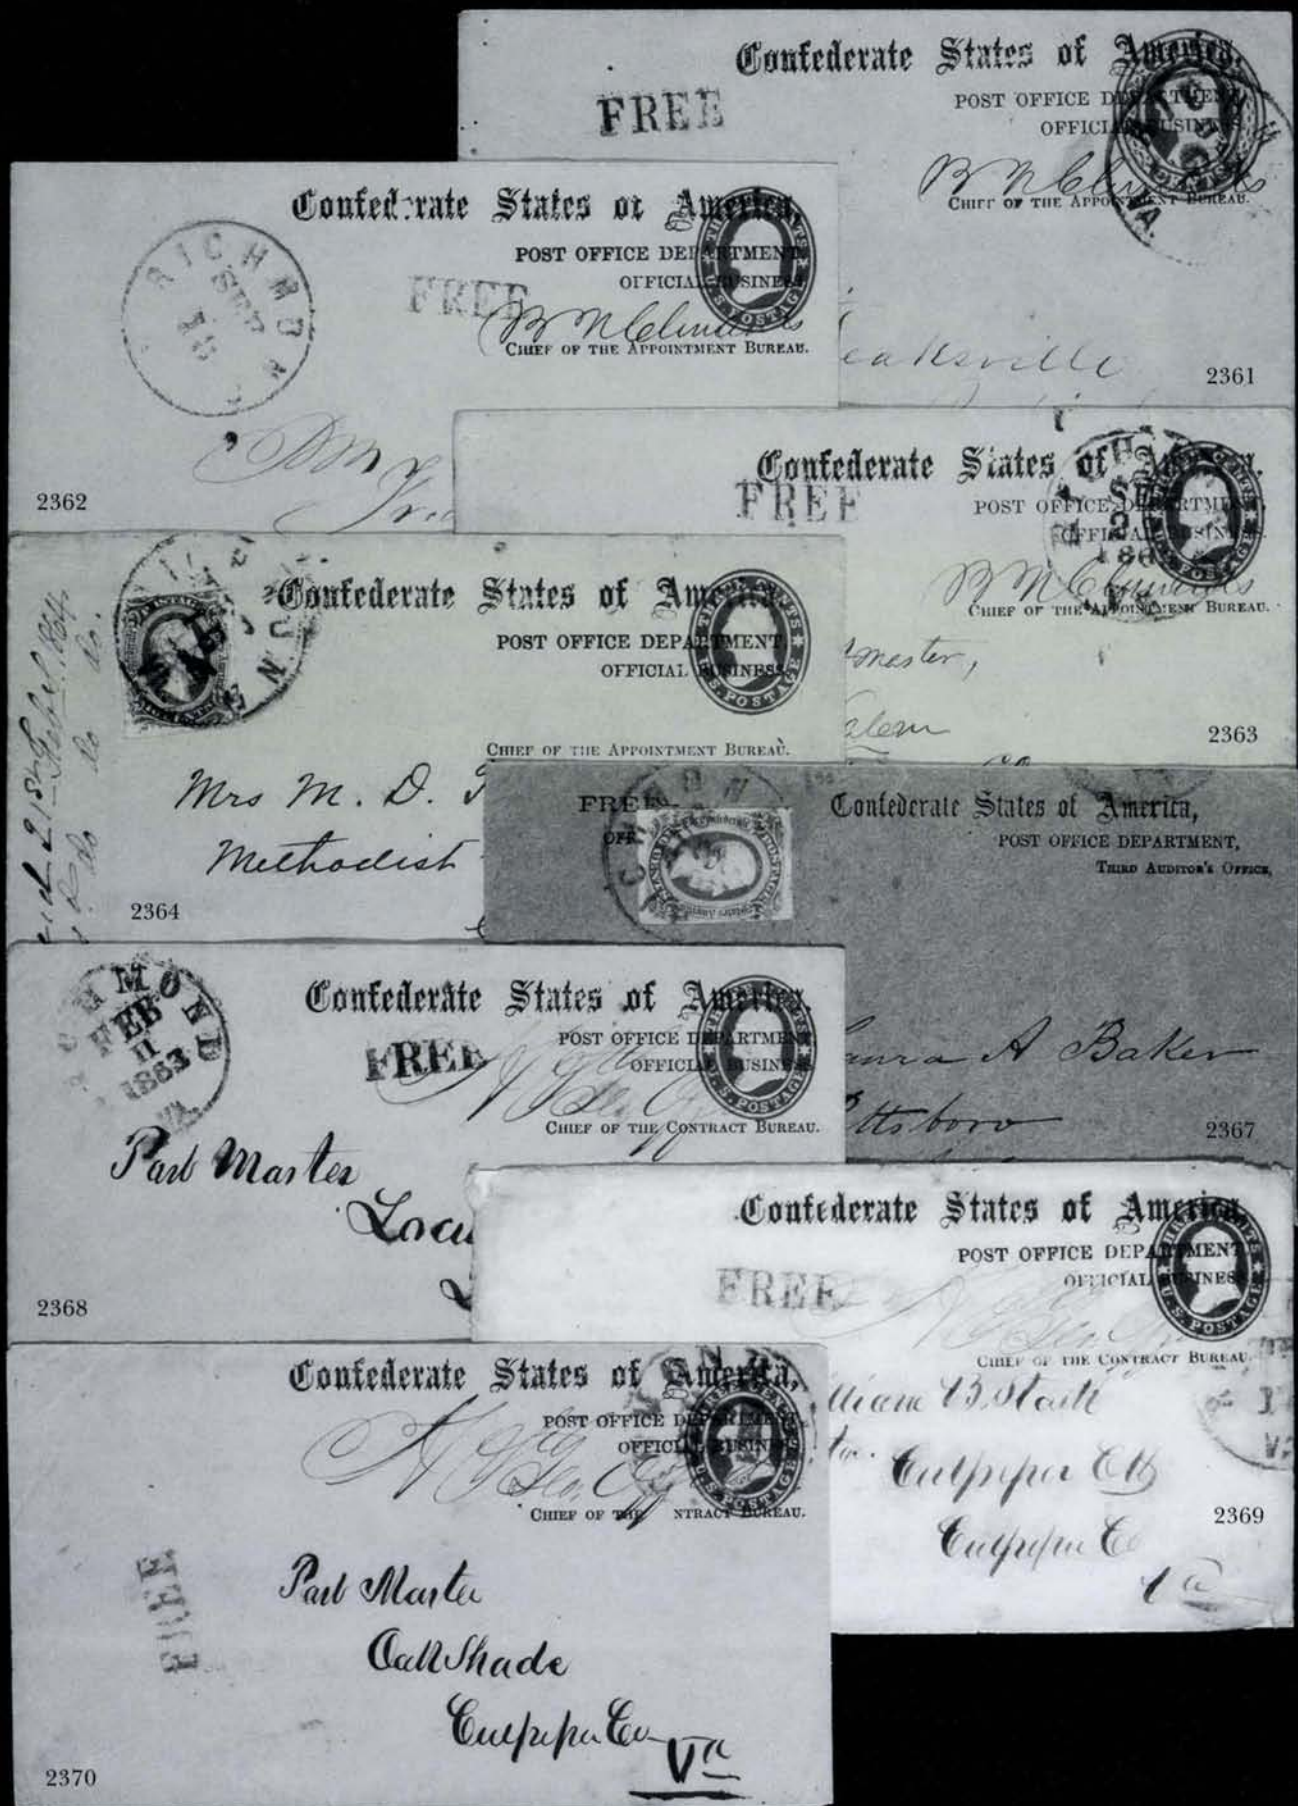 Confederate States of America,
FREE
POST OFFICE DEPARTMENT
OFFICIAL BUSINESS
CHIEF OF THE APPOINTMENT BUREAU.
VA.
eaksville
2361
Confed rate States of America,
RICHMOND
SEP
POST OFFICE DEPARTMENT
OFFICIAL BUSINESS
FREE
THREE CENTS
U.S. POSTAGE
B N Clements
CHIEF OF THE APPOINTMENT BUREAU.
2362
Confederate States of America.
FREE
POST OFFICE DEPARTMENT,
OFFICIAL BUSINESS
186
U.S. POSTAGE
B N Clements
CHIEF OF THE APPOINTMENT BUREAU.
master,
alem
2363
Confederate States of America,
POST OFFICE DEPARTMENT
OFFICIAL BUSINESS
THREE CENTS
U.S. POSTAGE
CHIEF OF THE APPOINTMENT BUREAU.
1864
do do do.
Mrs M. D.
Methodist
2364
FREE
Confederate States of America,
POST OFFICE DEPARTMENT,
THIRD AUDITOR'S OFFICE,
aura A Baker
ttsboro
2367
RICHMOND
FEB
11
1863
VA.
Confederate States of America,
FREE
POST OFFICE DEPARTMENT
OFFICIAL BUSINESS
U.S. POSTAGE
CHIEF OF THE CONTRACT BUREAU.
Post Master
Locu
2368
Confederate States of America,
POST OFFICE DEPARTMENT
OFFICIAL BUSINESS
FREE
U.S. POSTAGE
CHIEF OF THE CONTRACT BUREAU.
Culpeper CH
Culpeper Co
Va
2369
Confederate States of America,
POST OFFICE DEPARTMENT
OFFICIAL BUSINESS
U.S. POSTAGE
CHIEF OF THE NTRACT BUREAU.
FREE
Post Master
Oak Shade
Culpeper Co
Va
2370